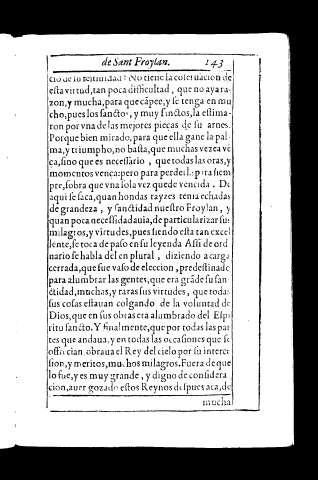 de Sant Froylan. 143
esta virtud, tan poca difficultad, que no aya ra-
zon, y mucha, para que cãpee, y se tenga en mu
cho, pues los sanctos, y muy sanctos, la estima-
ron por vna de las mejores pieças de su arnes.
Porque bien mirado, para que ella gane la pal
ma, y triumpho, no basta, que muchas vezes vẽ
ça, sino que es necessario, que todas las oras, y
momentos vença: pero para perder lo para siem
pre, sobra que vna sola vez quede vencida. De
aqui se saca, quan hondas rayzes tenia echadas
de grandeza, y sanctidad nuestro Froylan, y
quan poca necessidad auia, de particularizar sus
milagros, y virtudes, pues siendo esta tan excel
lente, se toca de paso en su leyenda Assi de ord
nario se habla del en plural, diziendo a carga
cerrada, que fue vaso de eleccion, predestinado
para alumbrar las gentes, que era grãde su san-
ctidad, muchas, y raras sus virtudes, que todas
sus cosas estauan colgando de la voluntad de
Dios, que en sus obras era alumbrado del Espi
ritu sancto. Y finalmente, que por todas las par
tes que andaua, y en todas las occasiones que se
offrecian, obraua el Rey del cielo por su interces
sion, y meritos, muchos milagros. Fuera de que
lo fue, y es muy grande, y digno de considera
cion, auer gozado estos Reynos despues aca, de
mucha